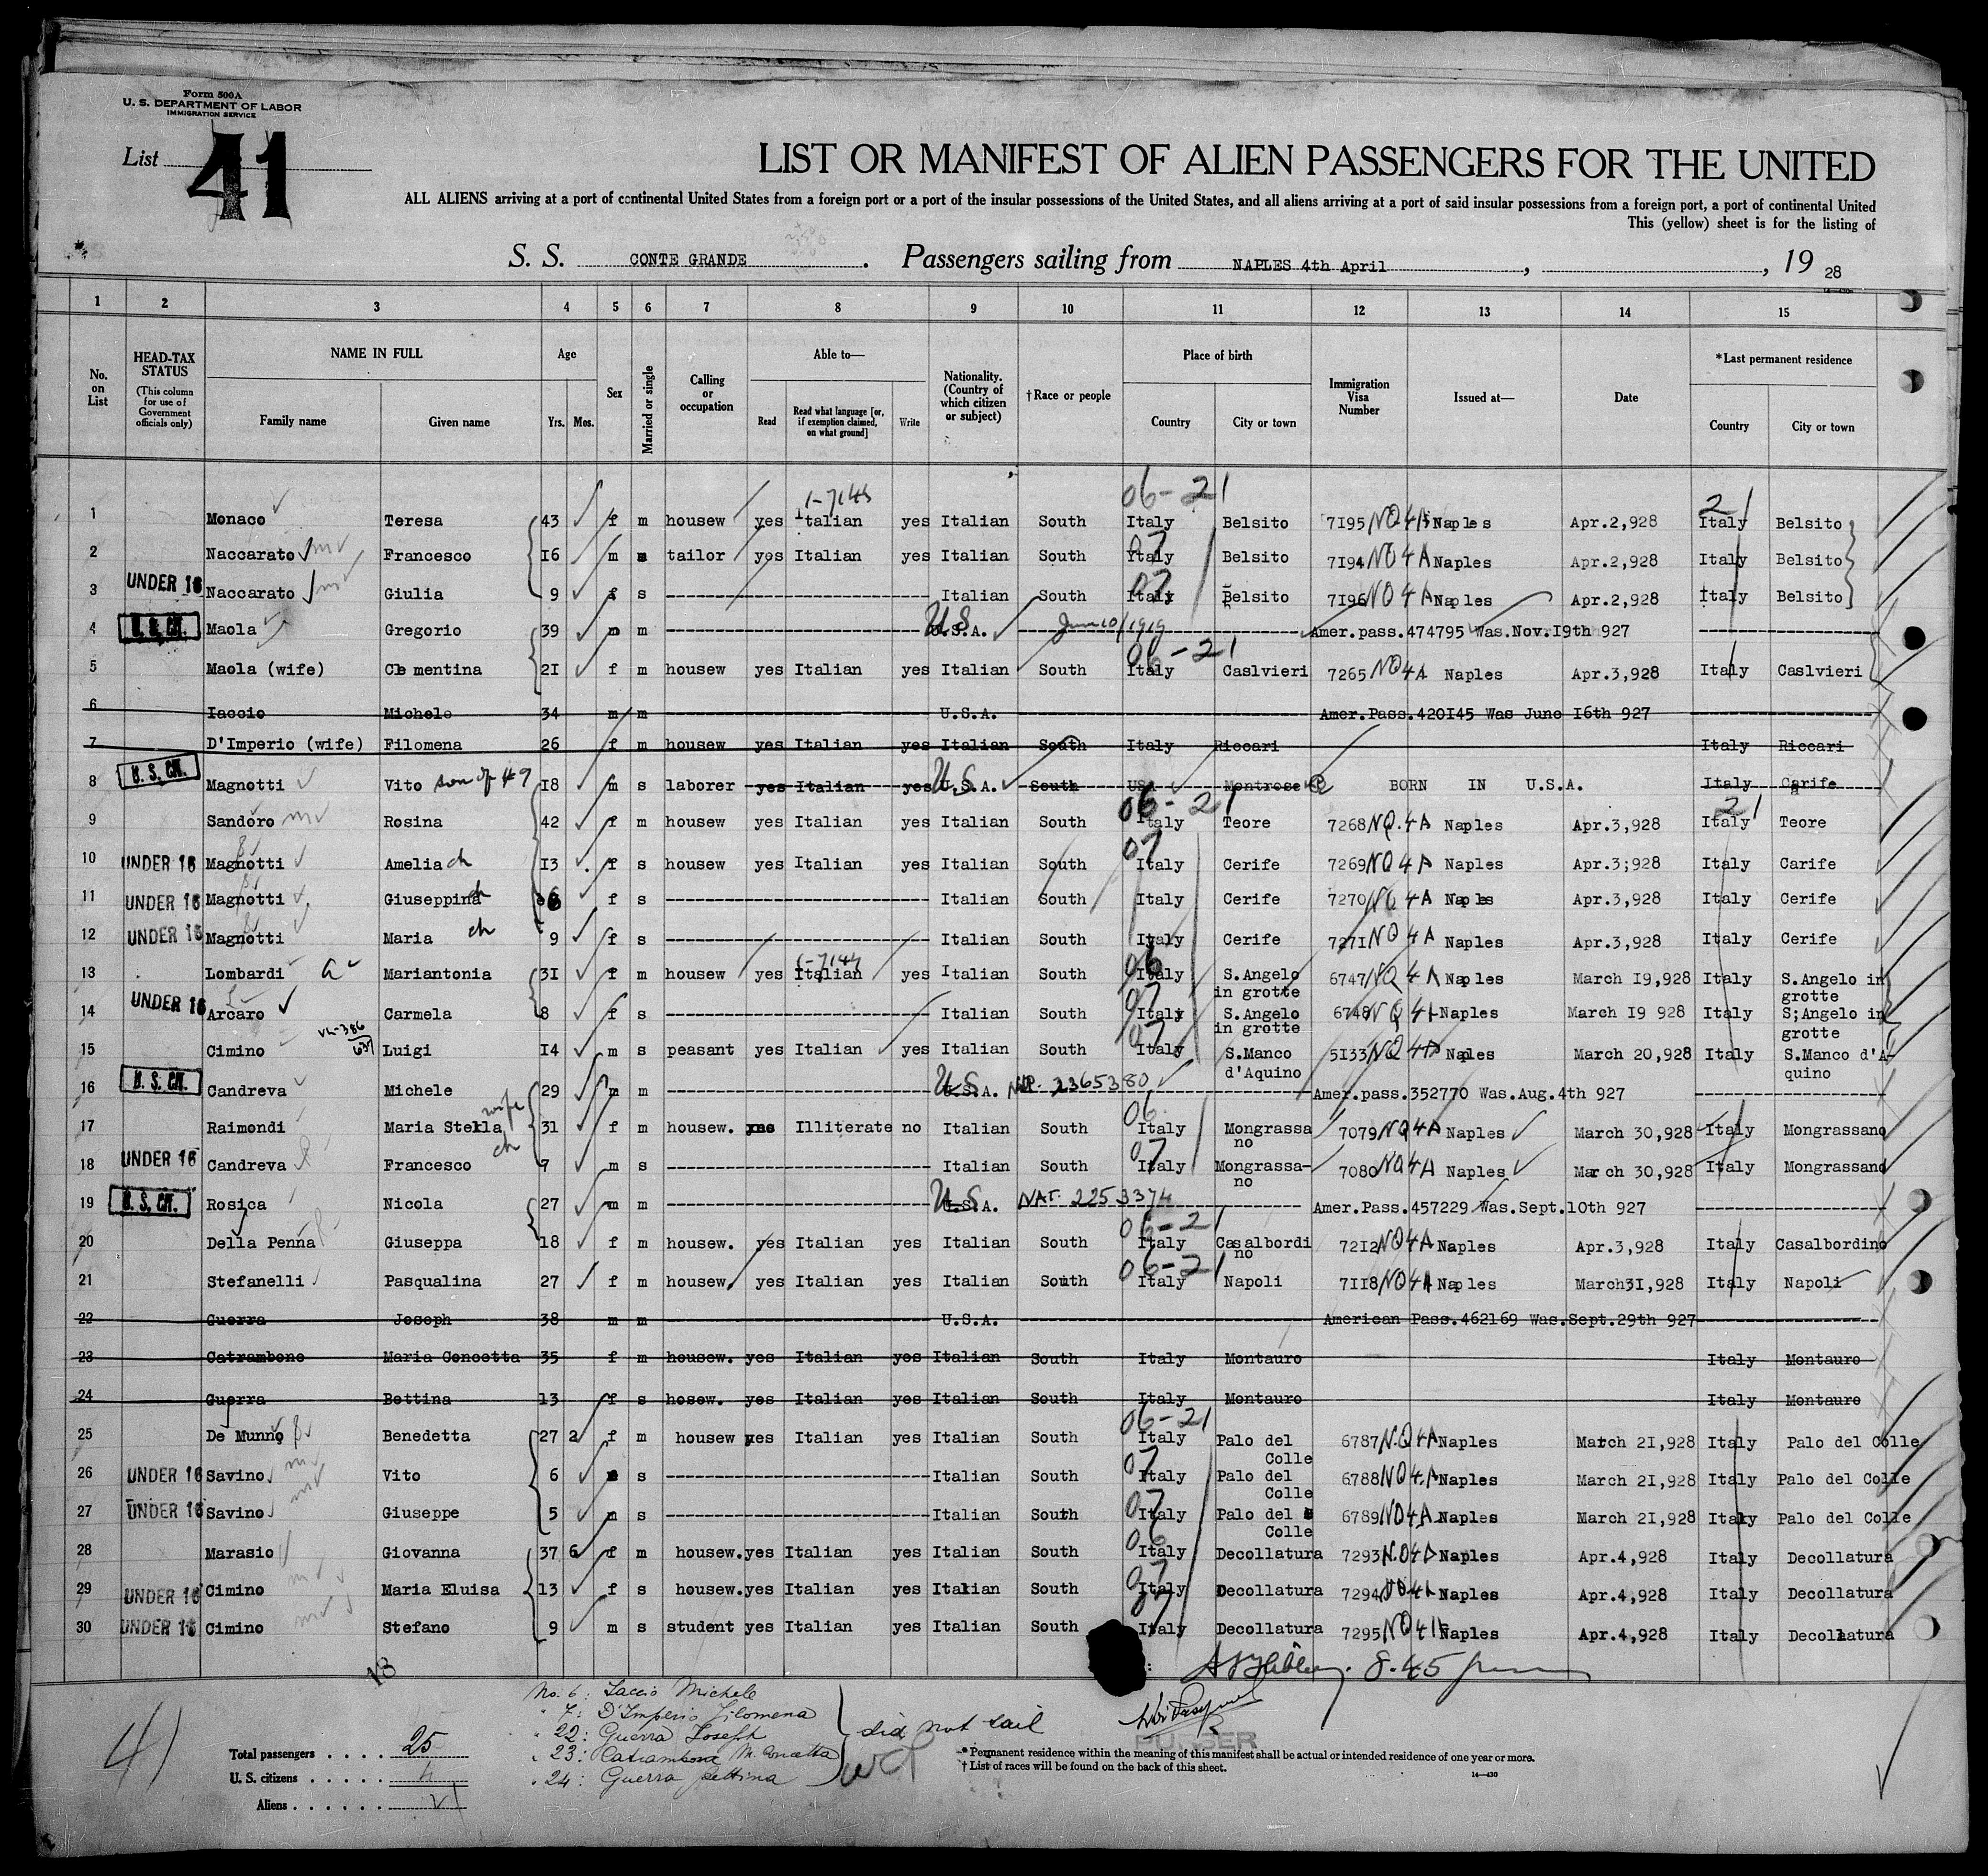 Form 500A
U. S. DEPARTMENT OF LABOR
IMMIGRATION SERVICE
List 41
LIST OR MANIFEST OF ALIEN PASSENGERS FOR THE UNITED
ALL ALIENS arriving at a port of continental United States from a foreign port or a port of the insular possessions of the United States, and all aliens arriving at a port of said insular possessions from a foreign port, a port of continental United
This (yellow) sheet is for the listing of
S. S. CONTE GRANDE. Passengers sailing from NAPLES 4th April, , 19 28
1 2 3 4 5 6 7 8 9 10 11 12 13 14 15
No. on List
HEAD-TAX STATUS (This column for use of Government officials only)
NAME IN FULL Family name Given name
Age Yrs. Mos.
Sex
Married or single
Calling or occupation
Able to— Read Read what language [or, if exemption claimed, on what ground] Write
Nationality. (Country of which citizen or subject)
†Race or people
Place of birth Country City or town
Immigration Visa Number
Issued at—
Date
*Last permanent residence Country City or town
06-21 21
1 Monaco Teresa 43 f m housew yes Italian yes Italian South Italy Belsito 7195 NQ4A Naples Apr.2,928 Italy Belsito
2 Naccarato Francesco 16 m s tailor yes Italian yes Italian South Italy Belsito 7194 NQ4A Naples Apr.2,928 Italy Belsito
3 UNDER 16 Naccarato Giulia 9 f s Italian South Italy Belsito 7196 NQ4A Naples Apr.2,928 Italy Belsito
4 U. S. CIT. Maola Gregorio 39 m m U.S.A. June 10/1919 Amer.pass.474795 Was.Nov.19th 927
5 Maola (wife) Clementina 21 f m housew yes Italian yes Italian South 06-21 Italy Caslvieri 7265 NQ4A Naples Apr.3,928 Italy Caslvieri
6 Iaccio Michele 34 m m U.S.A. Amer.Pass.420145 Was June 16th 927
7 D'Imperio (wife) Filomena 26 f m housew yes Italian yes Italian South Italy Riccari Italy Riccari
8 U. S. CIT. Magnotti Vito son of #9 18 m s laborer yes Italian yes U.S.A. South USA Montrose BORN IN U.S.A. Italy Carife
9 Sandoro Rosina 42 f m housew yes Italian yes Italian South 06-21 Italy Teore 7268 NQ.4A Naples Apr.3,928 21 Italy Teore
10 UNDER 16 Magnotti Amelia ch 13 f s housew yes Italian yes Italian South 07 Italy Cerife 7269 NQ4A Naples Apr.3;928 Italy Carife
11 UNDER 16 Magnotti Giuseppina ch 6 f s Italian South Italy Cerife 7270 NQ4A Naples Apr.3,928 Italy Cerife
12 UNDER 16 Magnotti Maria ch 9 f s Italian South Italy Cerife 7271 NQ4A Naples Apr.3,928 Italy Cerife
13 Lombardi Mariantonia 31 f m housew yes Italian yes Italian South 06 Italy S.Angelo in grotte 6747 NQ4A Naples March 19,928 Italy S.Angelo in grotte
14 UNDER 16 Arcaro Carmela 8 f s Italian South 07 Italy S.Angelo in grotte 6748 NQ4A Naples March 19 928 Italy S;Angelo in grotte
15 Cimino Luigi 14 m s peasant yes Italian yes Italian South 07 Italy S.Manco d'Aquino 5133 NQ4A Naples March 20,928 Italy S.Manco d'A-quino
16 U. S. CIT. Candreva Michele 29 m m U.S.A. 2365380 Amer.pass.352770 Was.Aug.4th 927
17 Raimondi Maria Stella wife 31 f m housew. no Illiterate no Italian South 06 Italy Mongrassano 7079 NQ4A Naples March 30,928 Italy Mongrassano
18 UNDER 16 Candreva Francesco ch 7 m s Italian South 07 Italy Mongrassa-no 7080 NQ4A Naples March 30,928 Italy Mongrassano
19 U. S. CIT. Rosica Nicola 27 m m U.S.A. NAT. 2253374 Amer.Pass.457229 Was.Sept.10th 927
20 Della Penna Giuseppa 18 f m housew. yes Italian yes Italian South 06-21 Italy Casalbordino 7212 NQ4A Naples Apr.3,928 Italy Casalbordino
21 Stefanelli Pasqualina 27 f m housew. yes Italian yes Italian South 06-21 Italy Napoli 7118 NQ4A Naples March31,928 Italy Napoli
22 Guerra Joseph 38 m m U.S.A. American Pass.462169 Was.Sept.29th 927
23 Catrambone Maria Concetta 35 f m housew. yes Italian yes Italian South Italy Montauro Italy Montauro
24 Guerra Bettina 13 f s hosew. yes Italian yes Italian South Italy Montauro Italy Montauro
25 De Munno Benedetta 27 2 f m housew yes Italian yes Italian South 06-21 Italy Palo del Colle 6787 NQ4A Naples March 21,928 Italy Palo del Colle
26 UNDER 16 Savino Vito 6 s Italian South 07 Italy Palo del Colle 6788 NQ4A Naples March 21,928 Italy Palo del Colle
27 UNDER 16 Savino Giuseppe 5 m s Italian South 07 Italy Palo del Colle 6789 NQ4A Naples March 21,928 Italy Palo del Colle
28 Marasio Giovanna 37 6 f m housew. yes Italian yes Italian South 06 Italy Decollatura 7293 NQ4A Naples Apr.4,928 Italy Decollatura
29 UNDER 16 Cimino Maria Eluisa 13 f s housew. yes Italian yes Italian South 07 Italy Decollatura 7294 NQ4A Naples Apr.4,928 Italy Decollatura
30 UNDER 16 Cimino Stefano 9 m s student yes Italian yes Italian South 07 Italy Decollatura 7295 NQ4A Naples Apr.4,928 Italy Decollatura
8.45
No. 6: Iaccio Michele
" 7: D'Imperio Filomena
" 22: Guerra Joseph
" 23: Catrambone M. Concetta
" 24: Guerra Bettina
did not sail
PURSER
41
Total passengers . . . . 25
U. S. citizens . . . . . 4
Aliens . . . . . . 21
* Permanent residence within the meaning of this manifest shall be actual or intended residence of one year or more.
† List of races will be found on the back of this sheet.
14—430